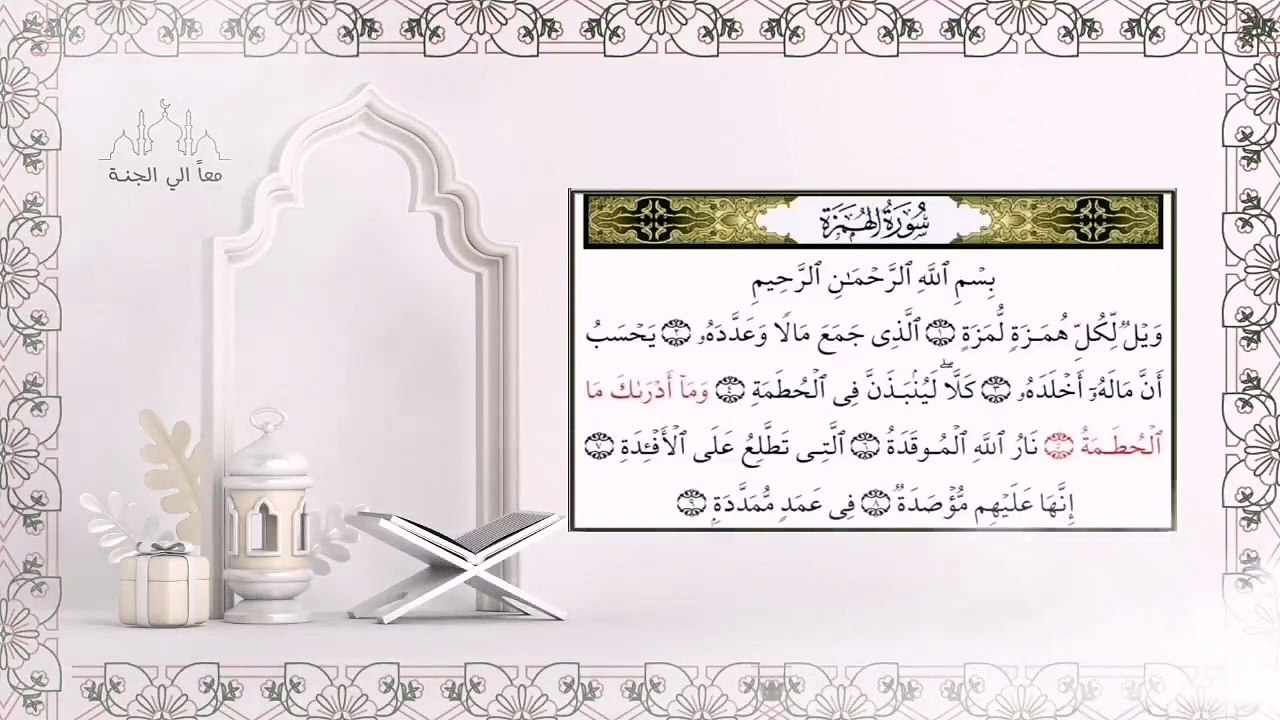 معاً الي الجنة
سُورَةُ الهُمَزَةِ
بِسْمِ ٱللَّهِ ٱلرَّحْمَـٰنِ ٱلرَّحِيمِ
وَيْلٌ لِّكُلِّ هُمَزَةٍ لُّمَزَةٍ ١ ٱلَّذِى جَمَعَ مَالًا وَعَدَّدَهُۥ ٢ يَحْسَبُ
أَنَّ مَالَهُۥٓ أَخْلَدَهُۥ ٣ كَلَّا ۖ لَيُنۢبَذَنَّ فِى ٱلْحُطَمَةِ ٤ وَمَآ أَدْرَىٰكَ مَا
ٱلْحُطَمَةُ ٥ نَارُ ٱللَّهِ ٱلْمُوقَدَةُ ٦ ٱلَّتِى تَطَّلِعُ عَلَى ٱلْأَفْـِٔدَةِ ٧
إِنَّهَا عَلَيْهِم مُّؤْصَدَةٌ ٨ فِى عَمَدٍ مُّمَدَّدَةٍۭ ٩